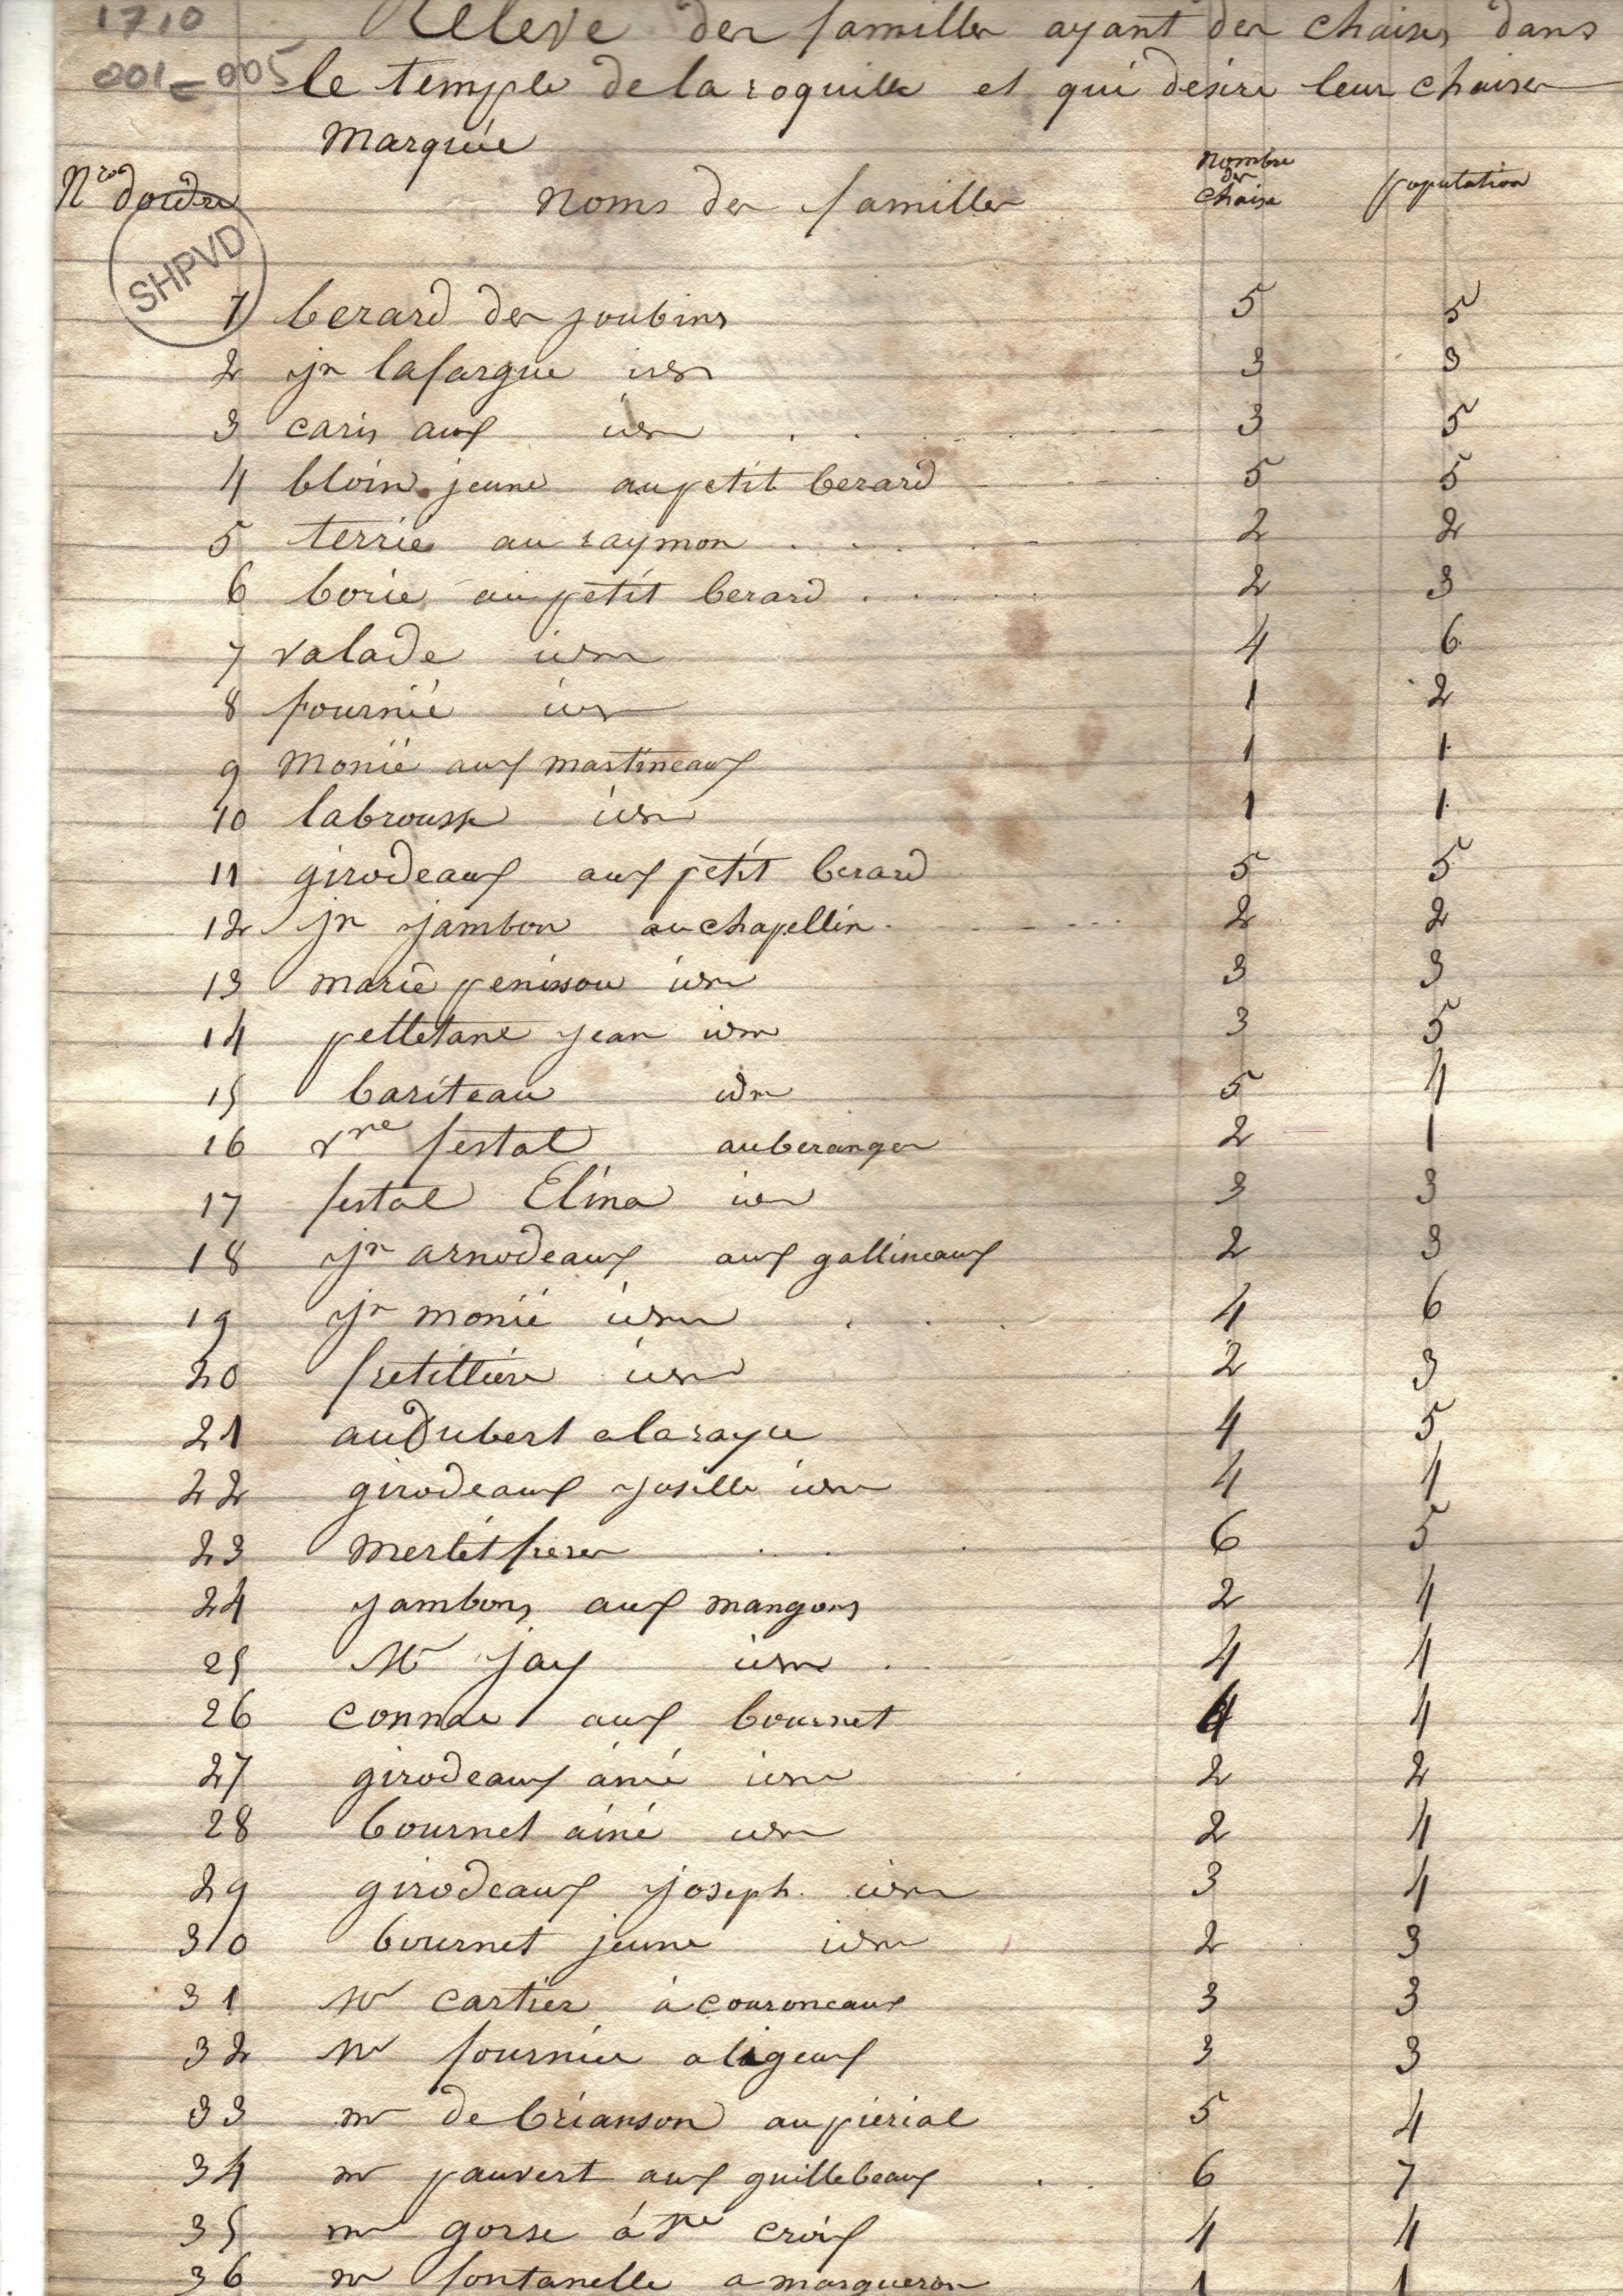 1710
001-005
Relevé des familles ayant des chaises dans
le temple de la roquille et qui désire leur chaises
marquée
Nros dordre noms des familles nombre des chaise population
SHPVD
1 berard des joubins 5 5
2 jn lafargue idem 3 3
3 caris aux idem 3 5
4 bloin jeune au petit berard 5 5
5 terrie au raymon 2 2
6 borie au petit berard 2 3
7 valade idem 4 6
8 fournié idem 1 2
9 monié aux martineaux 1 1
10 labrousse idem 1 1
11 girodeaux aux petit berard 5 5
12 jn jambon au chapellin 2 2
13 marie penissou idm 3 3
14 pelletane jean idm 3 5
15 bariteau idm 5 4
16 vve festal au beranger 2 1
17 festal Elina idm 3 3
18 jn arnodeaux aux gallineaux 2 3
19 jn monié idem 4 6
20 fretillière idem 2 3
21 audubert a la raye 4 5
22 girodeaux idem 4 4
23 merlet freres 6 5
24 jambons aux mangons 2 4
25 Mr jay idem 4 4
26 aux bournet 4 4
27 girodeaux ainé idem 2 2
28 bournet ainé idem 2 4
29 girodeaux joseph idem 3 4
30 bournet jeune idem 2 3
31 Mr cartier à couroneaux 3 3
32 Mr fournier a ligeux 3 3
33 mr de brianson au pierial 5 4
34 mr pauvert aux guillebeaux 6 7
35 mr gorse à Ste croix 4 4
36 mr fontanelle a margueron 1 1